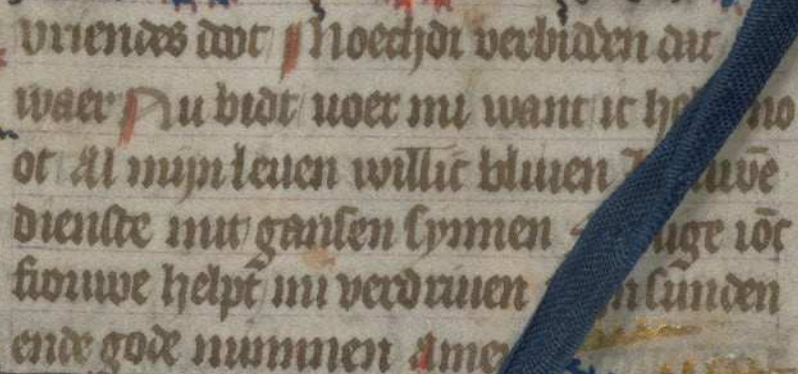 vriendes doot Noechdi verbidden dat
waer Nu bidt uoer mi want ic no
ot Al mijn leuen willic bliuen
dienste mit gansen synnen iōc
frouwe helpt mi verdriuen sunden
ende gode mimnen